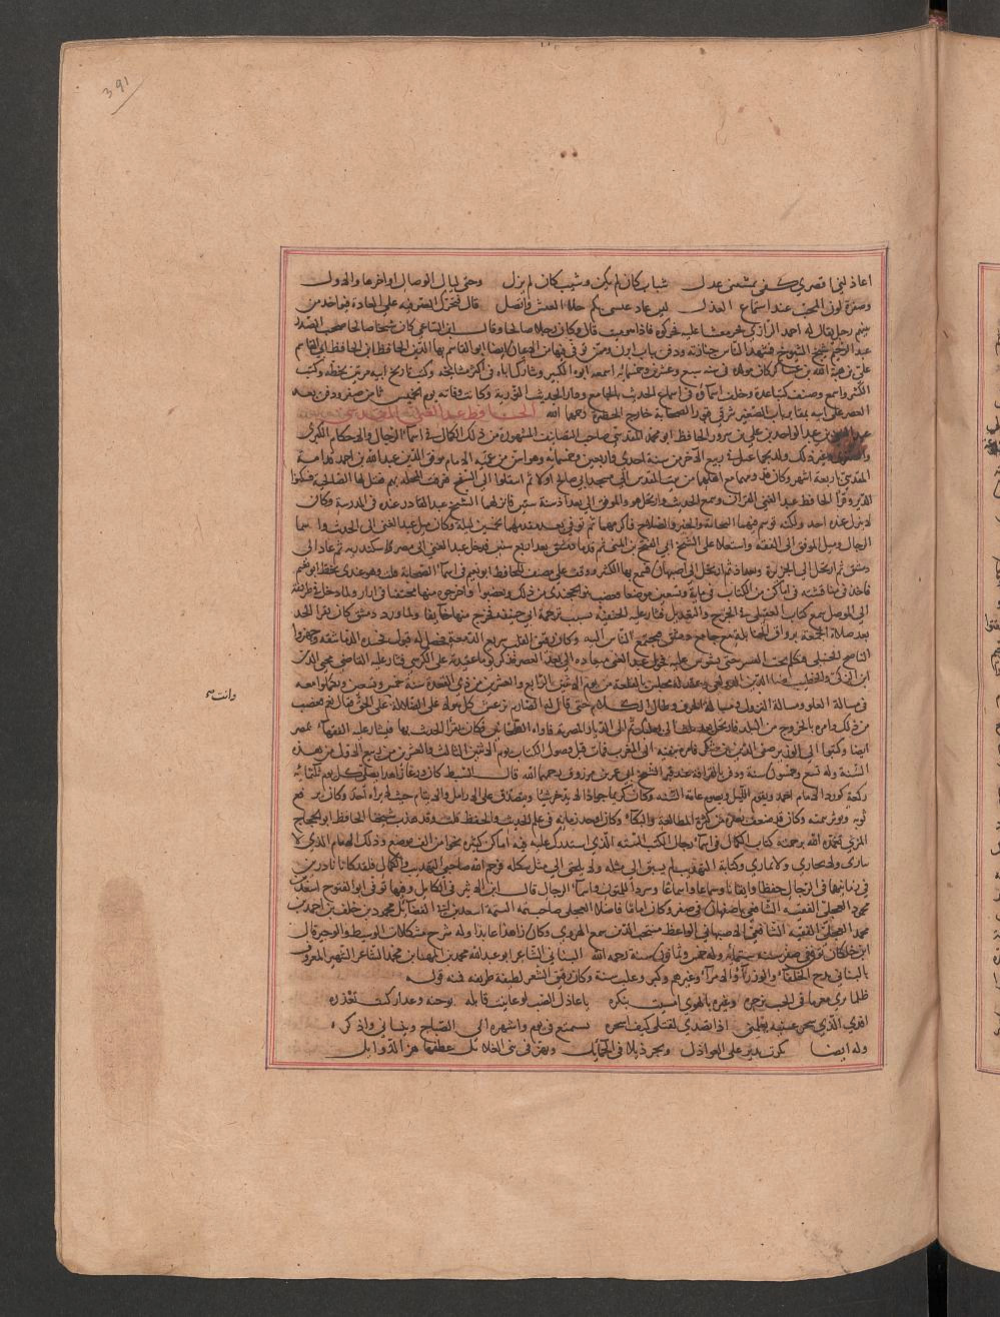 391
اعاذلتي اقصري كفى بمشيبي عذل شباب كان لم يكن وشيب كان لم يزل وحق ليالي الوصال اواخرها والاول
وصفرة لون المحب عند استماع العذل لئن عاد عيشي بكم حلا العيش واتصل قال فتحرك الصوفية على العادة فتواجد من
بينهم رجل يقال له احمد الرازي فخر مغشيا عليه فحركوه فاذا هو ميت قال وكان رجلا صالحا وقال ابن الساعي كان شيخا صالحا صحب الصدر
عبد الرحيم شيخ الشيوخ فشهد الناس جنازته ودفن بباب ابرز وممن توفي فيها من الاعيان ايضا ابو القاسم بهاء الدين الحافظ ابن الحافظ ابي القاسم
علي بن هبة الله بن عساكر كان مولده في سنة سبع وعشرين وخمسمائة اسمعه ابوه الكثير وشارك اباه في اكثر مشايخه وكتب تاريخ ابيه مرتين بخطه وكتب
الكثير واسمع وصنف كتبا عدة وخلف اباه في اسماع الحديث بالجامع ودار الحديث النورية وكانت وفاته يوم الخميس ثامن صفر ودفن بعد
العصر على ابيه بمقابر باب الصغير شرقي قبور الصحابة خارج الحظيرة رحمها الله الحافظ عبد الغني المقدسي
بن عبد الواحد بن علي بن سرور الحافظ ابو محمد المقدسي صاحب التصانيف المشهورة من ذلك الكمال في اسماء الرجال والاحكام الكبرى
وغير ذلك ولد بجماعيل في ربيع الاخر من سنة احدى واربعين وخمسمائة وهو اسن من عميه الامام موفق الدين عبد الله بن احمد بن قدامة
المقدسي باربعة اشهر وكان قدومهما مع اهلهما من بيت المقدس الى مسجد ابي صالح اولا ثم انتقلوا الى السفح فعرفت المحلة بهم فقيل لها الصالحية فسكنوا
الدير وقرا الحافظ عبد الغني القران وسمع الحديث وارتحل هو والموفق الى بغداد سنة ستين فانزلهما الشيخ عبد القادر عنده في المدرسة وكان
لا ينزل عنده احد ولكنه توسم فيهما النجابة والخير والصلاح فاكرمهما ثم توفي بعد مقدمهما بخمسين ليلة وكان ميل عبد الغني الى الحديث واسماء
الرجال وميل الموفق الى الفقه واشتغلا على الشيخ ابي الفتح بن المنى ثم قدما دمشق بعد اربع سنين فدخل عبد الغني الى مصر واسكندرية ثم عاد الى
دمشق ثم ارتحل الى الجزيرة وبغداد ثم ارتحل الى اصبهان فسمع بها الكثير ووقف على مصنف للحافظ ابو نعيم في اسماء الصحابة قلت وهو عندي بخط ابي نعيم
فاخذ في مناقشته في اماكن من الكتاب في مائة وتسعين موضعا فغضب بنو الخجندي من ذلك وتعصبوا واخرجوه منها مختفيا في ازار ولما دخل في طريقه
الى الموصل سمع كتاب العقيلي في الجرح والتعديل فثار عليه الحنفية بسبب ترجمة ابي حنيفة فخرج منها خايفا ولما ورد دمشق كان يقرا الحديث
بعد صلاة الجمعة برواق الحنابلة من جامع دمشق فيجتمع الناس اليه وكان رقيق القلب سريع الدمعة
الناصح الحنبلي فتكلم تحت النسر حتى يشوش عليه فحول عبد الغني ميعاده الى بعد العصر فذكر يوما عقيدته على الكرسي فثار عليه القاضي محيي الدين
ابن الزكي والخطيب ضياء الدين الدولعي وعقد له مجلس بالقلعة من يوم الاثنين الرابع والعشرين من ذي القعدة سنة خمس وتسعين وتكلموا معه
وانت صح
في مسالة العلو ومسالة النزول ومسالة الحرف وطال الكلام حتى قال له الصارم بزغش كل هولاء على الضلالة وعلى الحق قال نعم فغضب
من ذلك وامره بالخروج من البلد فارتحل بعد ثلاث الى بعلبك ثم الى الديار المصرية فاواه الطحانين فكان يقرا الحديث بها فثار عليه الفقهاء بمصر
ايضا وكتبوا الى الوزير صفي الدين بن شكر فامر بنفيه الى المغرب فمات قبل وصول الكتاب يوم الاثنين الثالث والعشرين من ربيع الاول من هذه
السنة وله تسع وخمسون سنة ودفن بالقرافة عند قبر الشيخ ابي عمرو بن مرزوق رحمهما الله قال السبط كان ورعا زاهدا يصلي كل يوم ثلثمائة
ركعة كورد الامام احمد ويقوم الليل ويصوم عامة السنة وكان كريما جوادا لا يدخر شيئا ويتصدق على الارامل والايتام حيث لا يراه احد وكان يرقع
ثوبه ويوثر بثمنه وكان قد ضعف بصره من كثرة المطالعة والبكاء وكان اوحد زمانه في علم الحديث والحفظ قلت وقد هذب شيخنا الحافظ ابو الحجاج
المزي تغمده الله برحمته كتاب الكمال في اسماء رجال الكتب الستة الذي استدرك عليه فيه اماكن كثيرة نحوا من الف موضع وذلك الامام المزي لا
يبارى ولا يجارى ولا يمارى وكتابه التهذيب لم يسبق الى مثله ولا يلحق الى مثل شكله فرحم الله صاحبي التهذيب والكمال فلقد كانا نادرين
في زمانهما في الرجال حفظا واتقانا وسماعا واسماعا وسردا للمتون واسماء الرجال قال ابن الاثير في الكامل وفيها توفي ابو الفتوح اسعد بن
محمود العجلي الفقيه الشافعي باصفهان في صفر وكان اماما فاضلا العجلي صاحب تتمة التتمة اسعد بن ابي الفضائل محمود بن خلف بن احمد بن
محمد العجلي الفقيه الشافعي الاصبهاني الواعظ منتجب الدين سمع الهروي وكان زاهدا عابدا وله شرح مشكلات الوسيط والوجيز قال
ابن خلكان توفي في صفر سنة ستمائة وله خمس وثمانون سنة رحمه الله البناني الشاعر ابو عبد الله محمد بن المهنا بن محمد الشاعر الشهير المعروف
بالبناني مدح الخلفاء والوزراء والامراء وغيرهم وكبر وعلت سنه وكان رقيق الشعر لطيفه ظريفه فمنه قوله
ظلما ترى مغرما في الحب تزجره وغيره بالهوى امسيت تنكره يا عاذل الصب لو عاينت قاتله بوجنة وعذار كنت تعذره
افدي الذي بسحر عينيه يعلمني اذا تصدى لقتلي كيف اسحره يستمتع في نوم واسهره الى الصباح وينساني واذكره
وله ايضا نكرت تدير على العواذل وتجر ذيلا في الخمايل وتميس في ثني الغلائل عطفها هز الذوابل